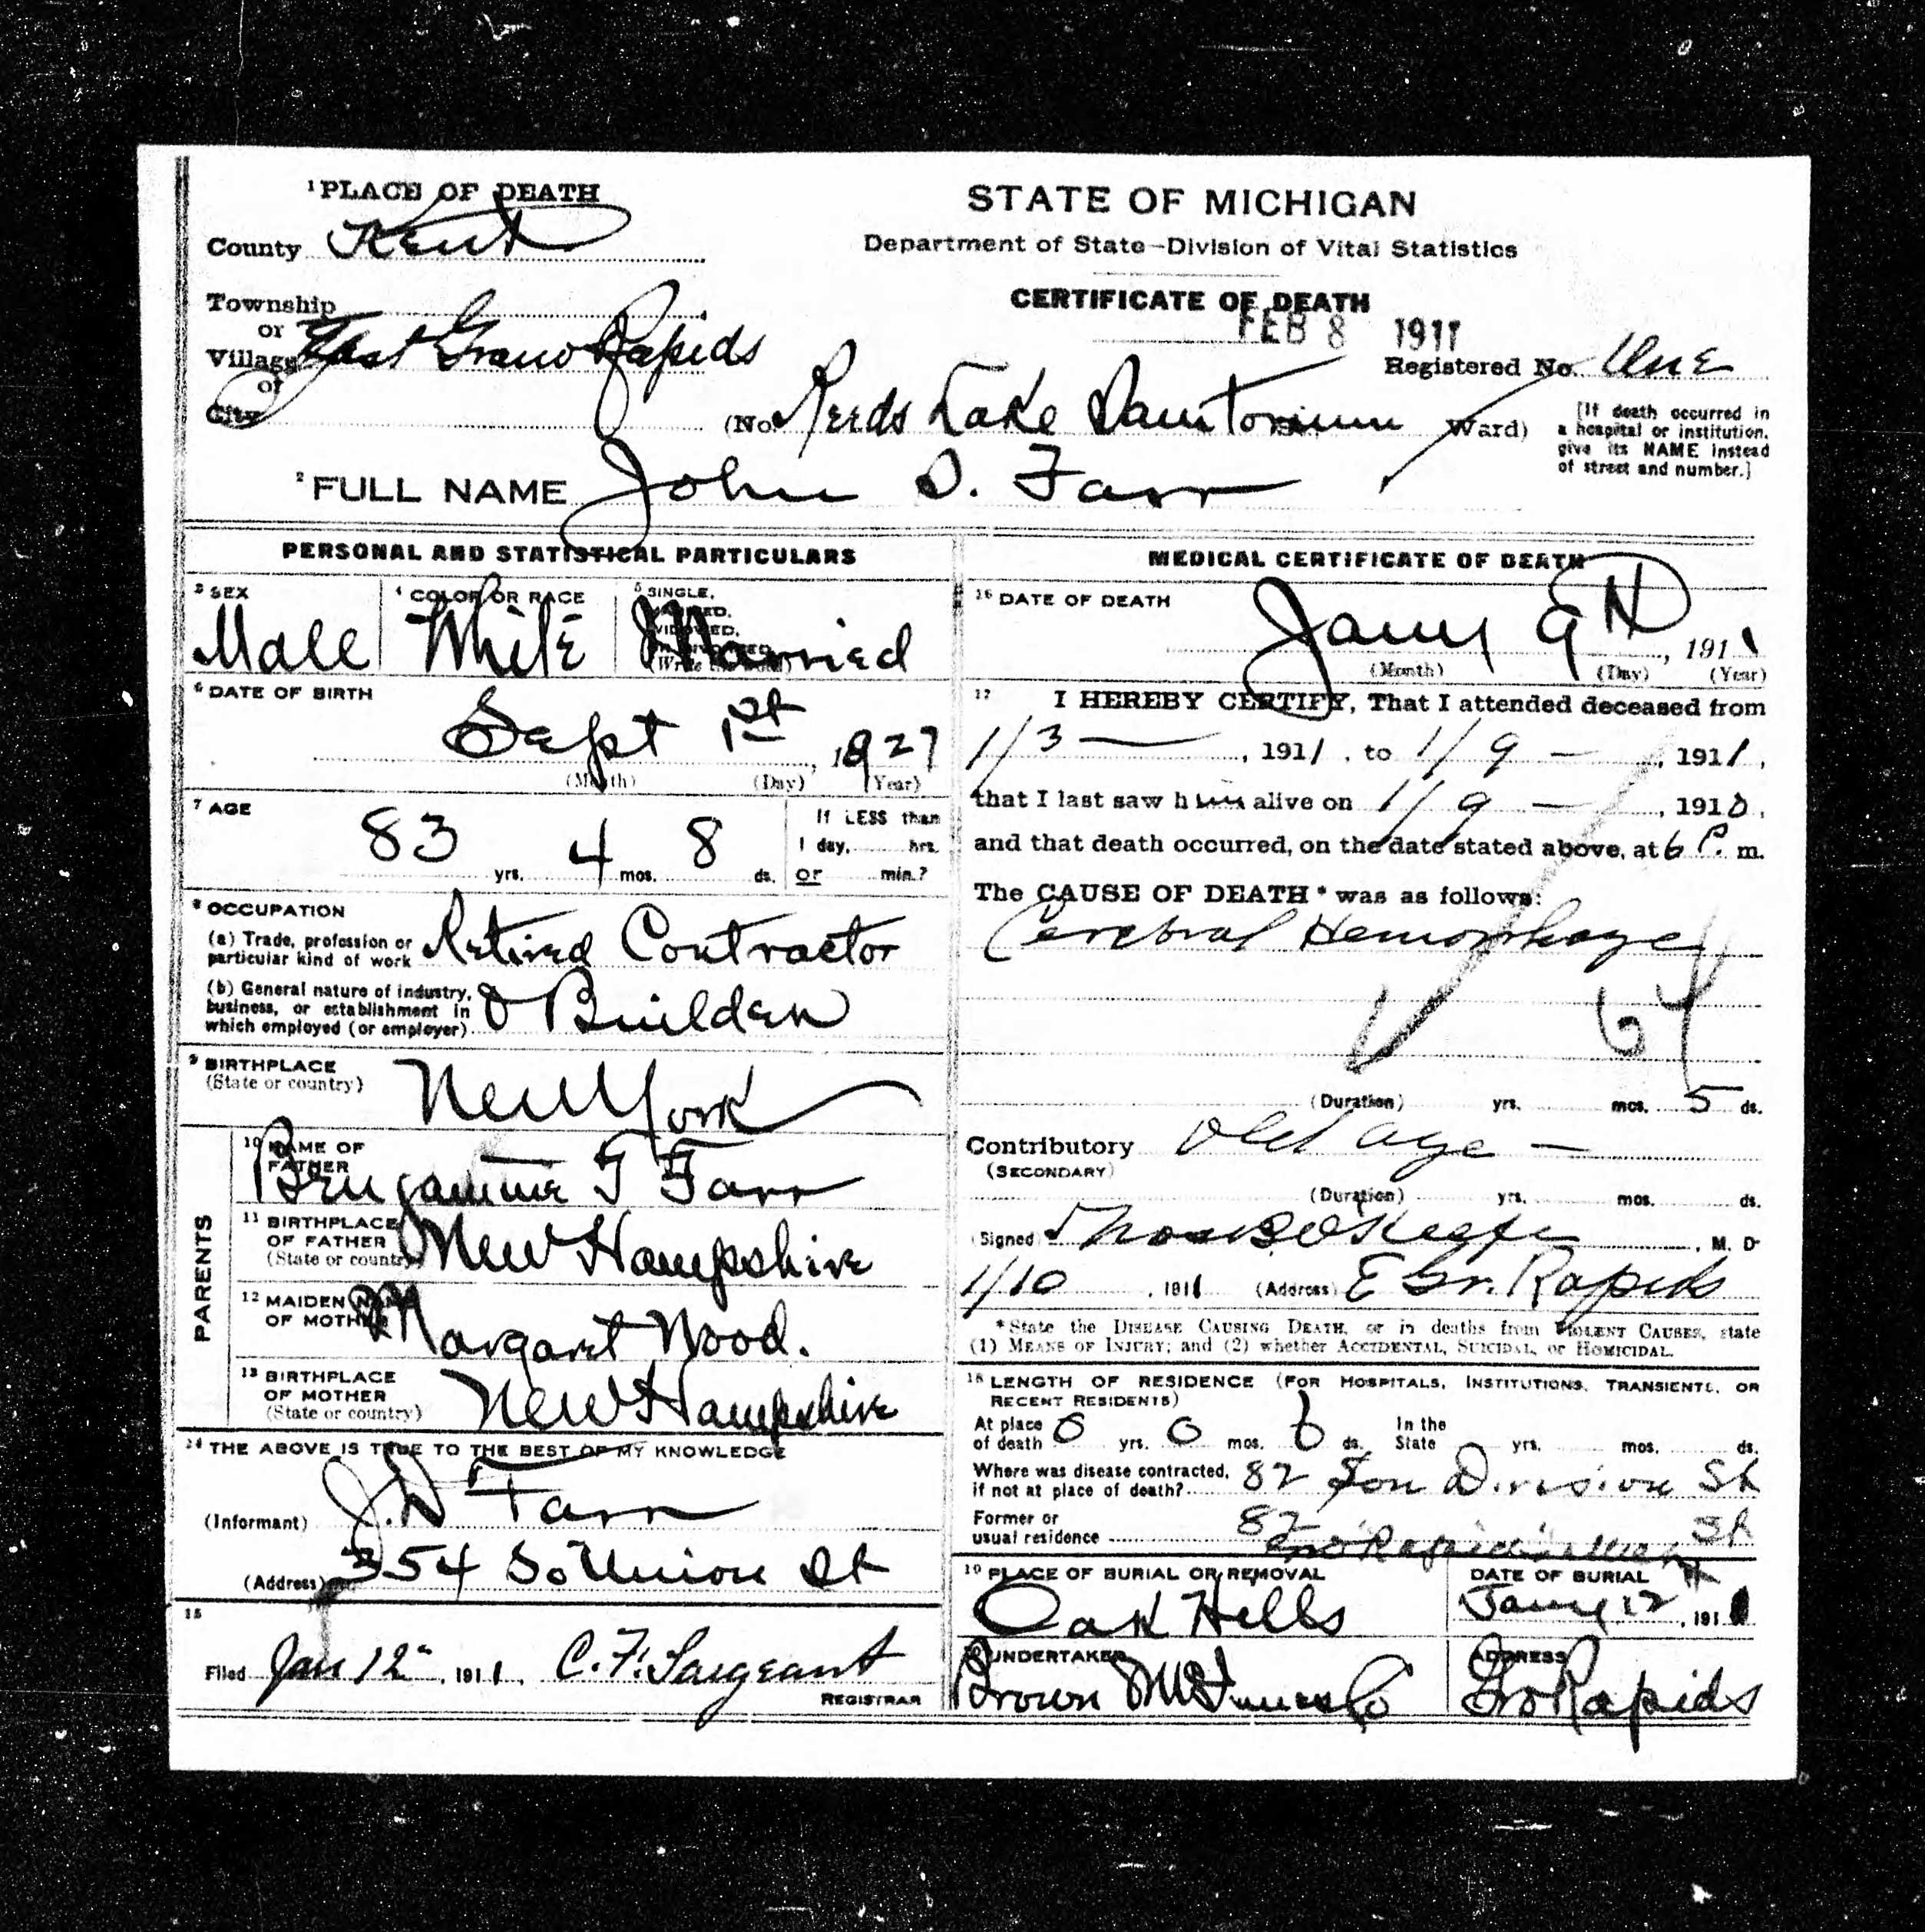 1 PLACE OF DEATH
County Kent
Township
or
Village East Grand Rapids
or
City
STATE OF MICHIGAN
Department of State—Division of Vital Statistics
CERTIFICATE OF DEATH
FEB 8 1911
Registered No. One
(No. Reeds Lake Sanitorium Ward)
[If death occurred in
a hospital or institution,
give its NAME instead
of street and number.]
2 FULL NAME John D. Farr
PERSONAL AND STATISTICAL PARTICULARS
3 SEX
Male
4 COLOR OR RACE
White
5 SINGLE,
Married
6 DATE OF BIRTH
Sept 1st, 1827
(Month) (Day) (Year)
7 AGE
83 yrs. 4 mos. 8 ds.
If LESS than
1 day, hrs.
or min.?
8 OCCUPATION
(a) Trade, profession or
particular kind of work Retired Contractor
(b) General nature of industry,
business, or establishment in
which employed (or employer) & Builder
9 BIRTHPLACE
(State or country) New York
PARENTS
10 NAME OF
FATHER
Benjamine F Farr
11 BIRTHPLACE
OF FATHER
(State or country) New Hampshire
12 MAIDEN NAME
OF MOTHER Margaret Wood.
13 BIRTHPLACE
OF MOTHER
(State or country) New Hampshire
14 THE ABOVE IS TRUE TO THE BEST OF MY KNOWLEDGE
(Informant) J.D Farr
(Address) 354 So Union St
15
Filed Jan 12, 1911, C. F. Sargeant
REGISTRAR
MEDICAL CERTIFICATE OF DEATH
16 DATE OF DEATH
Jany 9th, 1911
(Month) (Day) (Year)
17 I HEREBY CERTIFY, That I attended deceased from
1/3 —, 1911, to 1/9 —, 1911,
that I last saw him alive on 1/9 —, 1910,
and that death occurred, on the date stated above, at 6 P. m.
The CAUSE OF DEATH* was as follows:
Cerebral Hemorrhage
64
(Duration) yrs. mos. 5 ds.
Contributory Old age —
(SECONDARY)
(Duration) yrs. mos. ds.
(Signed) Thos B O'Keefe, M. D.
1/10, 1911 (Address) E Gr. Rapids
*State the DISEASE CAUSING DEATH, or in deaths from VIOLENT CAUSES, state
(1) MEANS OF INJURY; and (2) whether ACCIDENTAL, SUICIDAL, or HOMICIDAL.
18 LENGTH OF RESIDENCE (FOR HOSPITALS, INSTITUTIONS, TRANSIENTS, OR
RECENT RESIDENTS)
At place
of death 0 yrs. 0 mos. 6 ds. In the
State yrs. mos. ds.
Where was disease contracted,
if not at place of death? 82 Division St
Former or
usual residence 82 St
19 PLACE OF BURIAL OR REMOVAL
Oak Hills
DATE OF BURIAL
Jany 12th, 1911
20 UNDERTAKER
Brown Co
ADDRESS
Gr Rapids